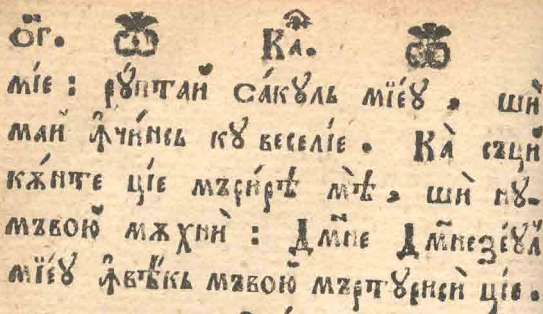 о҃г. Ка҃.
мі́е : рꙋ́птай са́кꙋль мїе́ꙋ , шѝ
май ꙟчи́нсь кꙋ веселі́е . Ка̀ съцй
кѫ́нте ці́е мъри́рѣ мѣ̀ , шѝ нꙋ-
мъвою̆ мѫхнѝ : Дм҃не Дм҃незе́ꙋл
мїе́ꙋ ꙟвѣ́кь мъвою̆ мъртꙋрисѝ ці́е .